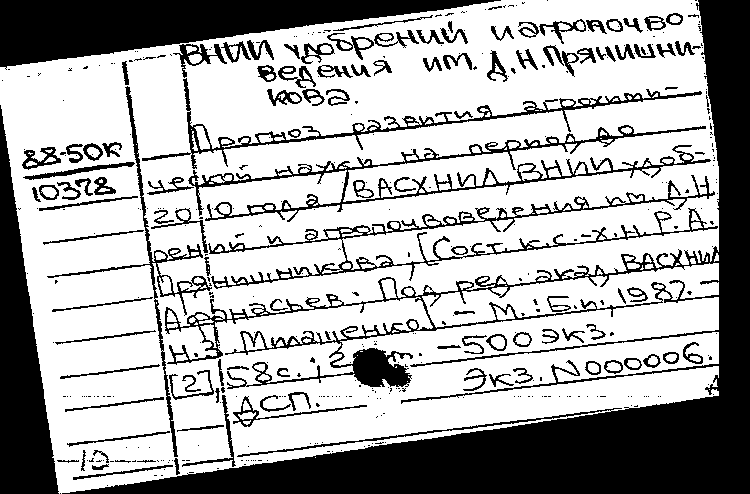 ВНИИ удобрений и агропочво-
ведения им. Д.Н.Прянишни-
кова.
Прогноз развития агрохими-
88-50К
ческой науки на период до
10378
2010 года / ВАСХНИЛ, ВНИИ удоб-
рений и агропочвоведения им. Д.Н.
Прянишникова; [Сост. к.с.-х.н. Р.А.
Афанасьев; Под ред. акад. ВАСХНИЛ
Н.З. Милащенко]. - М.: Б.и., 1987. -
[2], 58с.; 2 - 500 экз.
Экз. N000006.
ДСП.
10